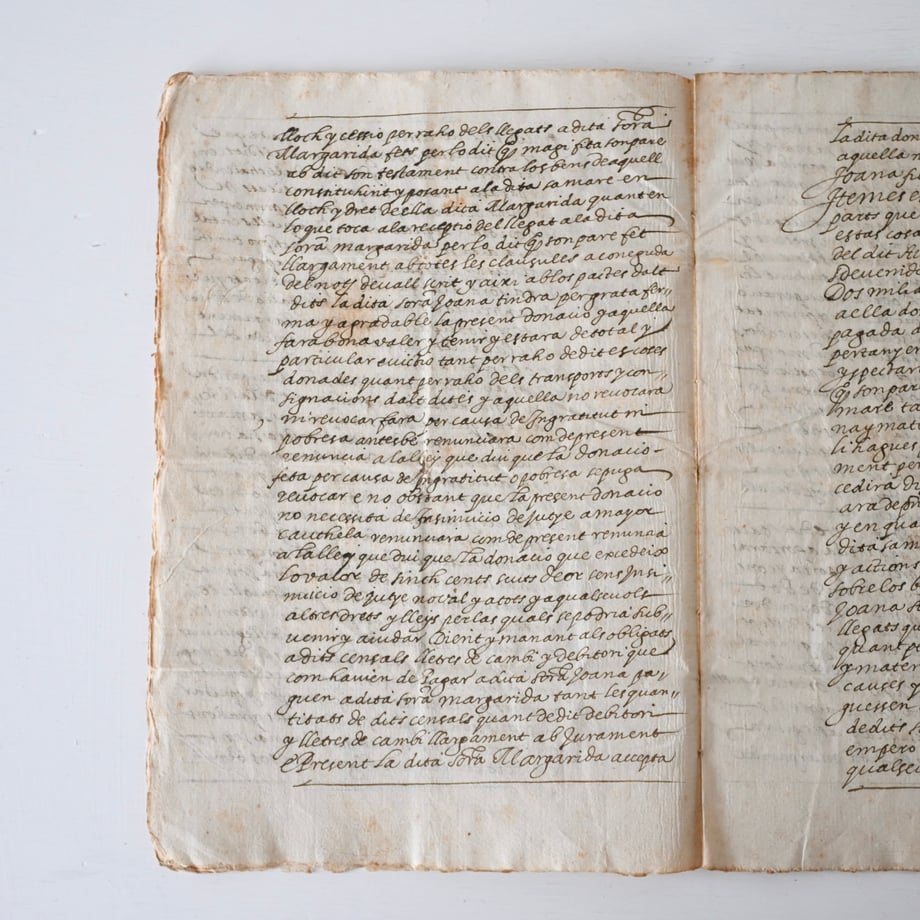 lloch y cessio per raho dels llegats a dita Sora
Margarida fets per lo dit q̃ magi fita son pare
ab dit son testament contra los bens de aquell
constituhint y posant a la dita sa mare en
lloch y dret de ella dita Margarida quant en
lo que toca a la receptio del llegat a la dita
Sora margarida per lo dit q̃ son pare fet
llargament ab totes les clausules a coneguda
del nots devall scrit y axi ab los pactes dalt
dits la dita Sora Joana tindra per grata fer„
ma y agradable la present donacio y aquella
fara bona valer y tenir y estara de total y
particular evictio tant per raho de dites coses
donades quant per raho dels transports y con„
signacions dalt dites y aquella no revocara
ni revocar fara per causa de Ingratitut ni
pobresa antes be renunciara com de present
renuncia a la lley que diu que la donacio
feta per causa de Ingratitut o pobresa se puga
revocar e no obstant que la present donacio
no necessita de Insinuicio de Jutye a mayor
cauthela renunciara com de present renuncia
a la lley que diu que la donacio que excedeix
lo valor de sinch cents scuts de or sens Insi„
nuicio de Jutye no val y a tots y aqualsevols
altres drets y lleys per las quals se podria sub„
venir y aiudar Dient y manant als obligats
a dits censals lletres de cambi y debitori que
com havien de pagar a dita Sora Joana pa„
guen a dita Sora margarida tant les quan„
titats de dits censals quant de dit debitori
y lletres de cambi llargament ab Jurament
e Present la dita Sora Margarida accepta
la dita don
aquella
Joana
Item es
parts que
estas cosa
del dit
Dos milia
a ella do
pagada a
pertanyen
y spectar
q̃ son par
mare ta
na y mat
li hagues
ment per
cedira
ara de pr
y en qua
dita sa m
y actions
sobre los b
Joana
llegats qu
quant p
y mater
causes y
guessen
de dits
empero
qualsev